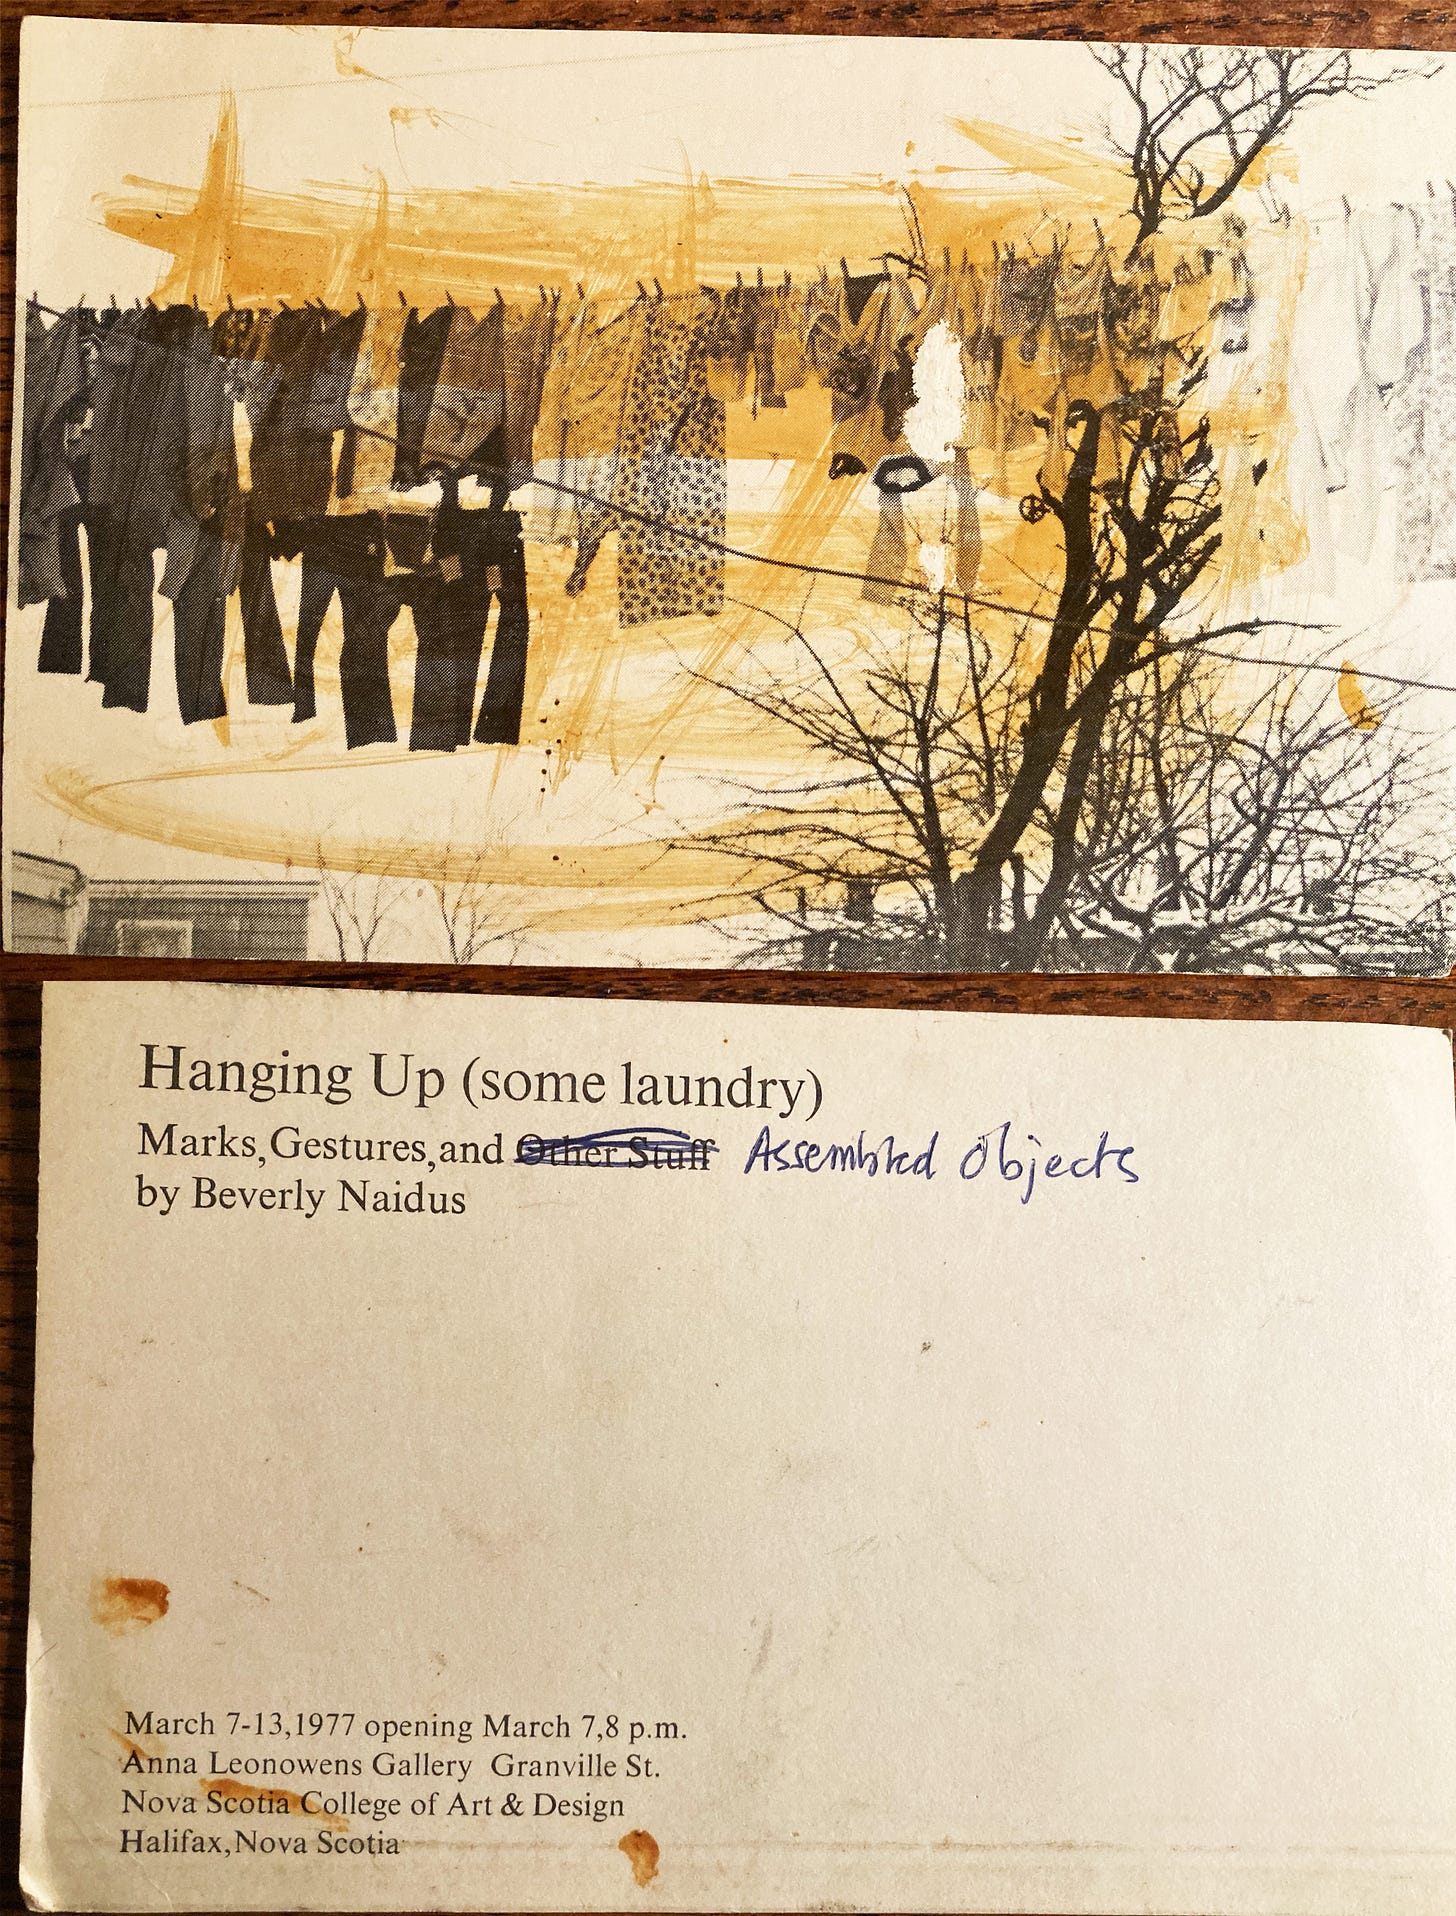 Hanging Up (some laundry)
Marks, Gestures, and Other Stuff Assembled Objects
by Beverly Naidus
March 7-13, 1977 opening March 7, 8 p.m.
Anna Leonowens Gallery Granville St.
Nova Scotia College of Art & Design
Halifax, Nova Scotia